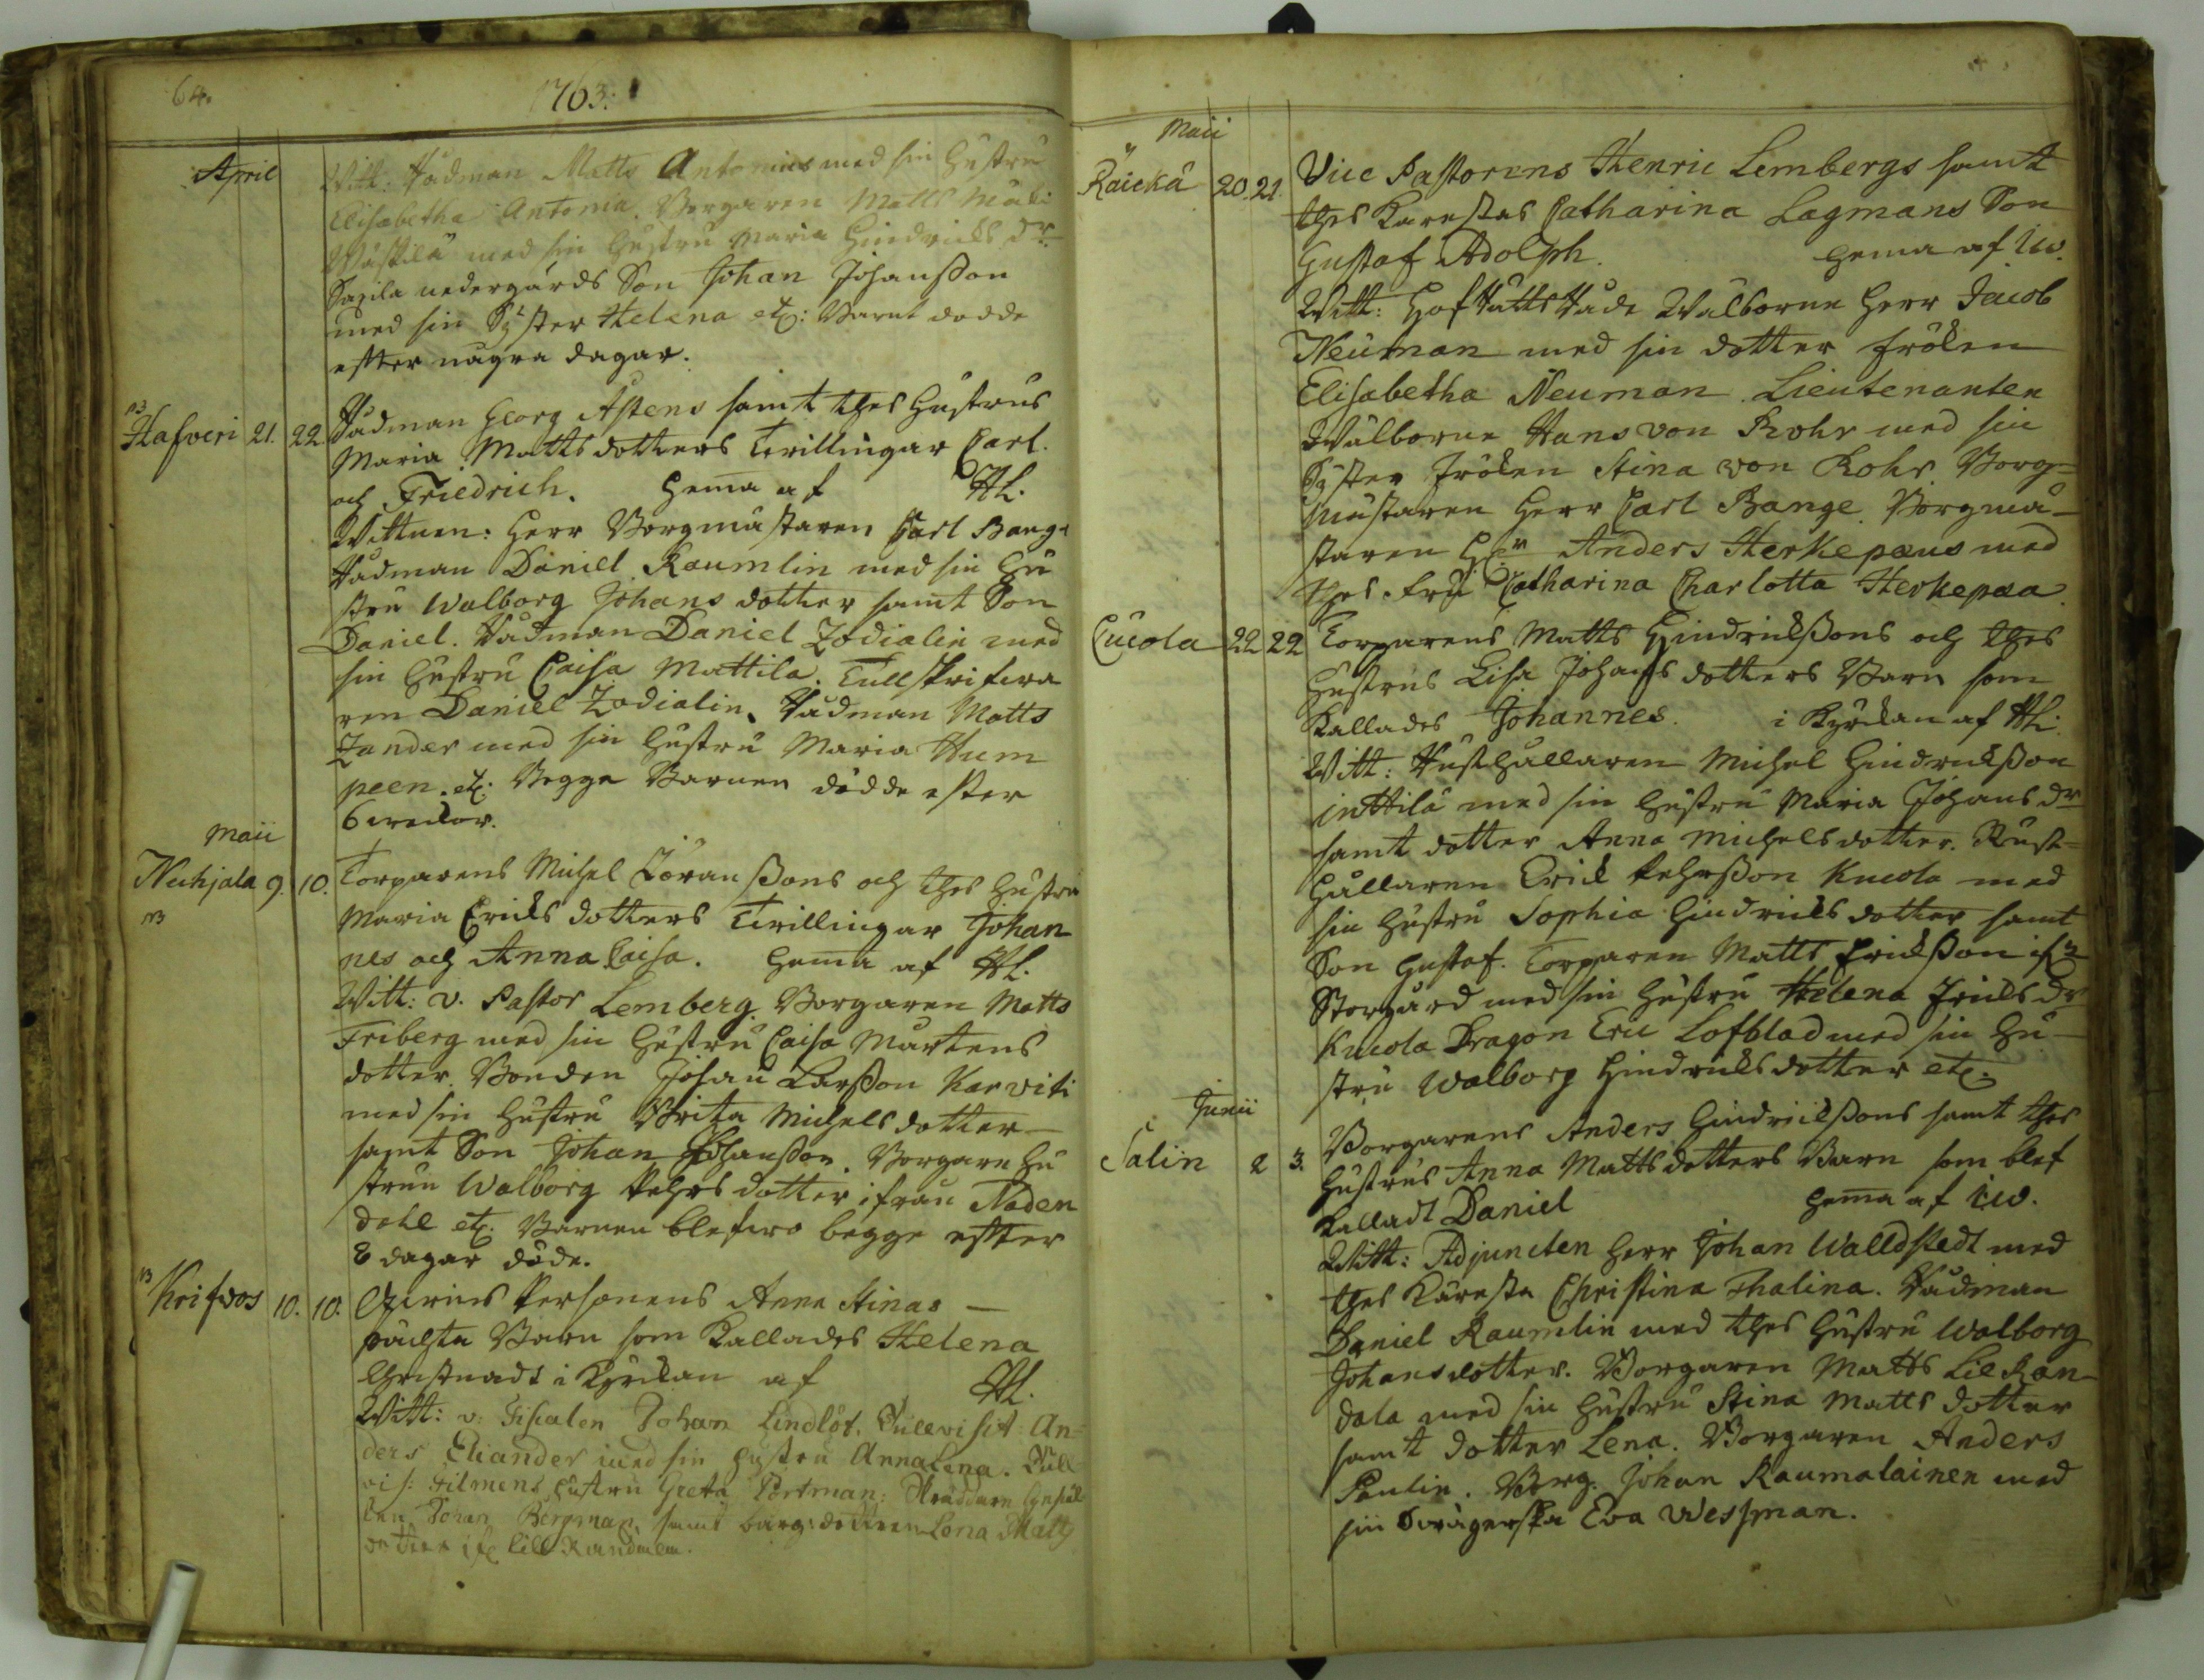 64.
1763.
April
Witt: Rådman Matts Antonius med sin hustru
Elisabetha Antonia. Borgaren Matts Mali
Wäskilä med sin hustru Maria Hindrichs dr
Saxila nedergårds Son Johan Johansson
med sin Syster Helena etc: Barnt dödde
efter några dagar.
NB
Hafveri 21. 22. Rådman Georg Astens samt thes hustrus
Maria Mattsdotters Tvillingar Carl
och Friedrich. hemma af HL.
Wittnen: Herr Borgmästaren Carl Bange
Rådman Daniel Raumlin med sin hu
stru Walborg Johans dotter samt Son
Daniel. Rådman Daniel Zodialin med
sin hustru Caisa Mattila. Tullskrifva
ren Daniel Zodialin. Rådman Matts
Zander med sin hustru Maria Hum
peen. etc: Begge Barnen dödde efter
6 weckor.
Maii
Nuhjala 9. 10. Torparens Michel Göranssons och thes hustru
NB
Maria Erichs dotters Tvillingar Johan
nes och Anna Caisa. hemma af HL.
Witt: v. Pastor Lemberg. Borgaren Matts
Friberg med sin hustru Caisa Mårtens
dotter. Bonden Johan Larsson Karviti
med sin hustru Brita Michelsdotter
samt Son Johan Johansson. Borgare hu
strun Walborg Pehrsdotter ifrån Naden
dahl etc. Barnen blefwo begge efter
8 dagar döde.
NB
Krifvos 10. 10. Qwins Personens Anna Stinas
oächta Barn som kallades Helena
Christnadt i Kyrckan af HL.
Witt: v: Fiscalen Johan Lindlöf. Tullvisit: An=
ders Eliander med sin hustru Anna Lena. Tull
vis: Filmens hustru Greta Portman: Skräddare Gesäl
len Johan Bergman, samt borg: dottren Lena Matts
dotter ifr Lill Randala.
Maii
Raickä 20. 21. Vice Pastorens Henric Lembergs samt
thes Kärestas Catharina Lagmans Son
Gustaf Adolph. hema af IW.
Witt: HofRättsRåde Wälborne Herr Jacob
Neuman med sin dotter fröken
Elisabetha Neuman. Lieutenanten
Wälborne Hans von Rohr med sin
Syster Fröken Stina von Rohr. Borg=
mästaren Herr Carl Bange. Borgmä=
staren Herr Anders Herkepæus med
thes fru Catharina Charlotta Herkepæa.
Cucola 22 22 Torparens Matts Hindricssons och thes
hustrus Lisa Johans dotters Barn som
kallades Johannes. i Kyrckan af HL.
Witt: Rusthållaren Michel Hindricsson
inttilä med sin hustru Maria Johans dr
samt dotter Anna Michelsdotter. Rust=
hållaren Erick Pehrsson Kucola med
sin hustru Sophia Hindrichsdotter samt
Son Gustaf. Torparen Matts Ericsson ifr
Storgård med sin hustru Helena Erichs dr
Kucola Dragon Eric Lofblad med sin hu=
stru Walborg Hindrichsdotter etc.
Junii
Salin 2 3. Borgarens Anders Hindricssons samt thes
hustrus Anna Mattsdotters Barn som blef
kalladt Daniel hemma af IW.
Witt: Adjuncten Herr Johan Walldstedt med
thes Käresta Christina Thalina. Rådman
Daniel Raumlin med thes hustru Walborg
Johansdotter. Borgaren Matts Lil Ran=
dala med sin hustru Stina Matts dotter
samt dotter Lena. Borgaren Anders
Paulin. Borg. Johan Raumalainen med
sin Swägerska Eva Wessman.